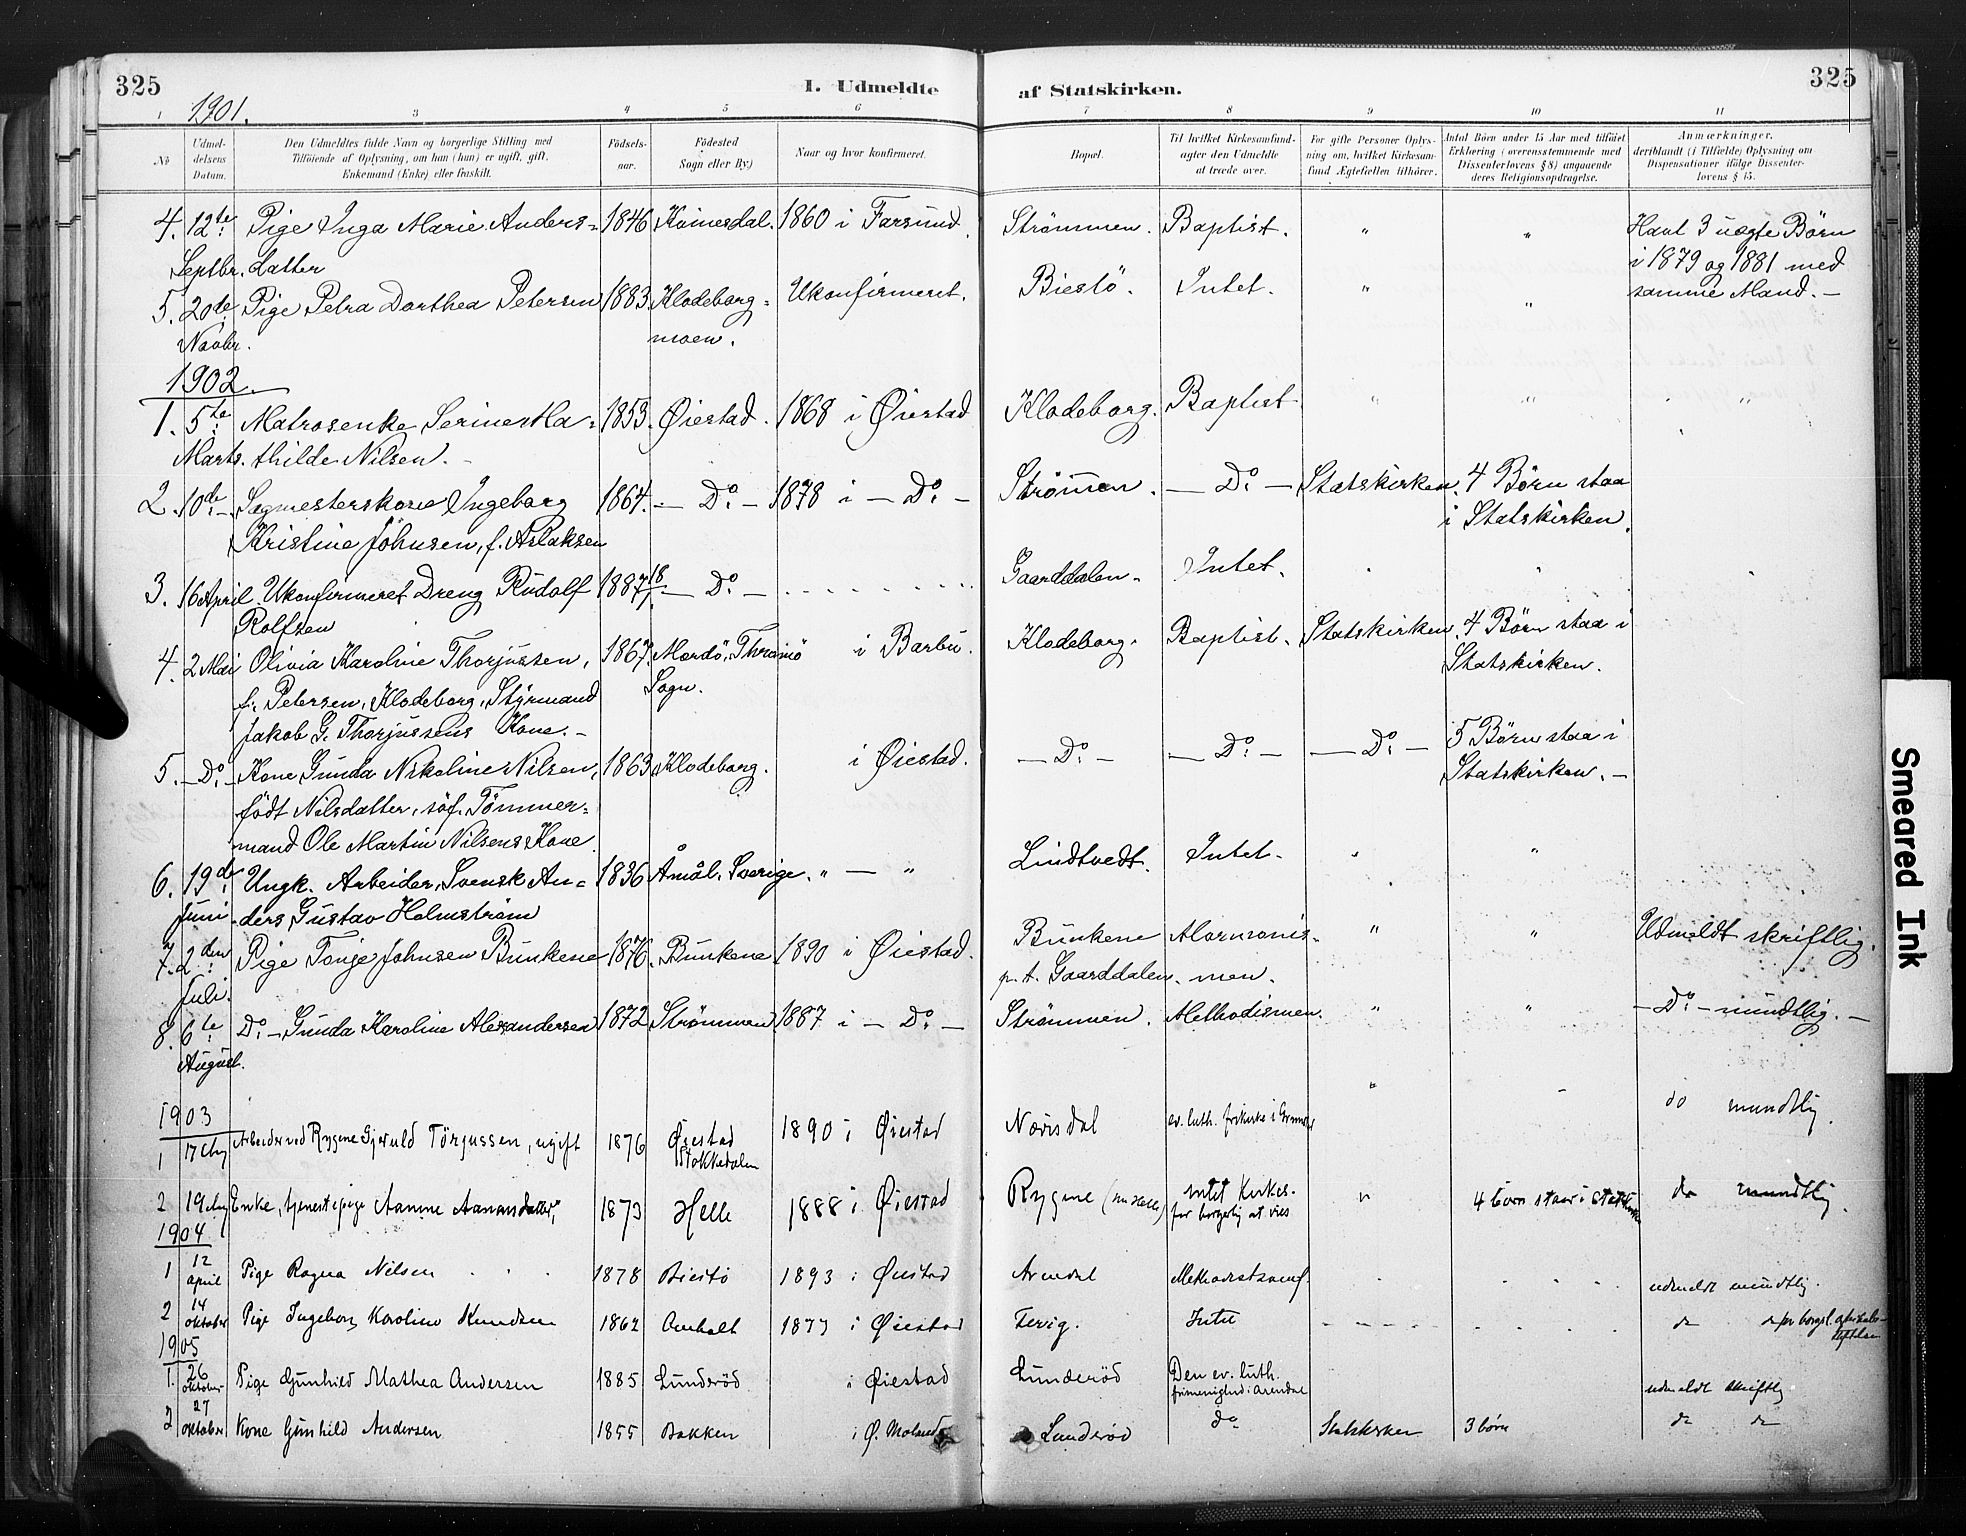 325
I. Udmeldte af Statskirken.
325
1901.
1 3 4 5 6 7 8 9 10 11
No
Udmeldelsens Datum.
Den Udmeldtes fulde Navn og borgerlige Stilling med
Tilføiende af Oplysning, om han (hun) er ugift, gift,
Enkemand (Enke) eller fraskilt.
Fødselsaar.
Fødested
Sogn eller By.)
Naar og hvor konfirmeret.
Bopæl.
Til hvilket Kirkesamfund
agter den Udmeldte
at træde over.
For gifte Personer Oplysning om, hvilket Kirkesamfund Ægtefællen tilhører.
Antal Børn under 15 Aar med tilføiet
Erklæring (overensstemmende med
Dissenterlovens § 8) angaaende
deres Religionsopdragelse.
Anmærkninger,
deriblandt (i Tilfælde) Oplysning om
Dispensationer ifølge Dissenterlovens § 15.
4. 12te Pige Inga Marie Anders= 1846 Kvinesdal. 1860 i Farsund. Strømmen. Baptist. " " Havt 3 uægte Børn
Septbr. datter i 1879 og 1881 med
5. 20de Pige Petra Dorthea Petersen 1883 Klodeborg= Ukonfirmeret. Biestö. Intet. " " samme Mand. -
Novbr. moen.
1902.
1. 5te Matrosenke Serine Ma= 1853. Øiestad. 1868 i Øiestad Klodeborg. Baptist " " "
Marts. thilde Nilsen. -
2. 10de Sagmesterskone Ingeborg 1864. - Do - 1878 i - Do - Strømmen. - Do - Statskirken. 4 Børn staa
Kristine Johnsen, f. Aslaksen i Statskirken.
3. 16 April Ukonfirmeret Dreng Rudolf 1887 18/ - Do - Gaarddalen. Intet.
Rolfsen
4. 2 Mai Olivia Karoline Thorjussen, 1867. Merdö, Thromö i Barbu. Klodeborg. Baptist. Statskirken. 4 Børn staa i
f. Petersen, Klodeborg, Styrmand Sogn. Statskirken.
Jakob G. Thorjussens Kone. -
5. - Do - Kone Gunda Nikoline Nilsen, 1863 Klodeborg. i Øiestad. - Do - - Do - - Do - 5 Børn staa i
født Nilsdatter, søf. Tömmer= Statskirken. -
mand Ole Martin Nilsens Kone.
6. 19de Ungk. Arbeider, Svensk An= 1836 Åmål. Sverige. " - " Lindtvedt. Intet. "
Juni ders Gustav Holmström
7. 2den Pige Tonje Johnsen Bunkene 1876. Bunkene 1890 i Øiestad. Bunkene Mormonis- " " Udmeldt skriftlig.
Juli. p. t. Gaarddalen. men.
8. 6te Do - Gunda Karoline Alexandersen 1872 Strømmen 1887 i - Do - Strømmen. Methodismen. " " - Do - mundtlig. -
August.
1903
1 Arbeider ved Rygene Gjeruld Törjussen, ugift 1876 Øiestad 1890 i Øiestad Növisdal ev. luth. frikirke i " - do mundtlig
Stokkedalen
2 19 Enke, tjenestepige Aanne Aanonsdatter, 1873 Helle 1888 i Øiestad Rygene intet Kirkes. " 4 börn staar i do mundtlig
for borgerlig at vies
1904
1 12 april Pige Ragna Nilsen 1878 Biestö 1893 i Øiestad Arendal Methodistsamf. udmeldt mundtlig.
2 14 oktober Pige Ingeborg Karoline Knudsen 1862 1877 i Øiestad Fevig. Intet do do for borgerl.
1905
1. 26 oktober Pige Gunhild Mathea Andersen 1885 Lunderöd i Øiestad Lunderöd Den ev. luth. udmeldt skriftlig
frimenighed i Arendal
2 27 oktober Kone Gunhild Andersen 1855 Bakken i Ø. Moland Lunderöd do Statskirken 3 börn do do
Smeared Ink